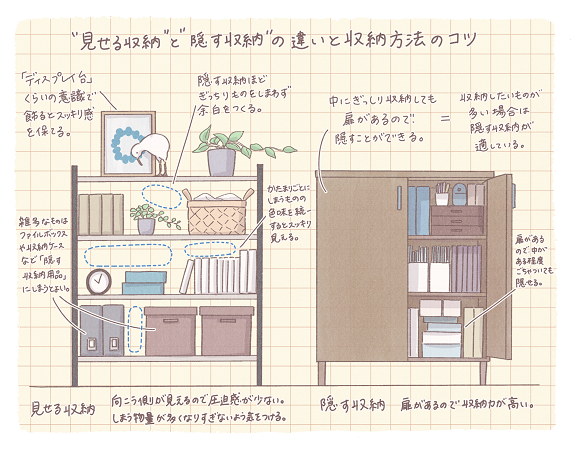 "見せる収納"と"隠す収納"の違いと収納方法のコツ
「ディスプレイ台」
くらいの意識で
飾るとスッキリ感
を保てる。
隠す収納ほど
ぎっちりものをしまわず
余白をつくる。
中にぎっしり収納しても
扉があるので!
隠すことができる。
=
収納したいものが
多い場合は
隠す収納が
適している。
かたまりごとに
しまうものの
色味を統一
するとスッキリ
見える。
雑多なものは
ファイルボックス
や収納ケース
など「隠す
収納用品」
にしまうとよい。
扉がある
ので中が
ある程度
ごちゃついても
隠せる。
見せる収納
向こう側が見えるので圧迫感が少ない。
しまう物量が多くなりすぎないよう気をつける。
隠す収納
扉があるので収納力が高い。